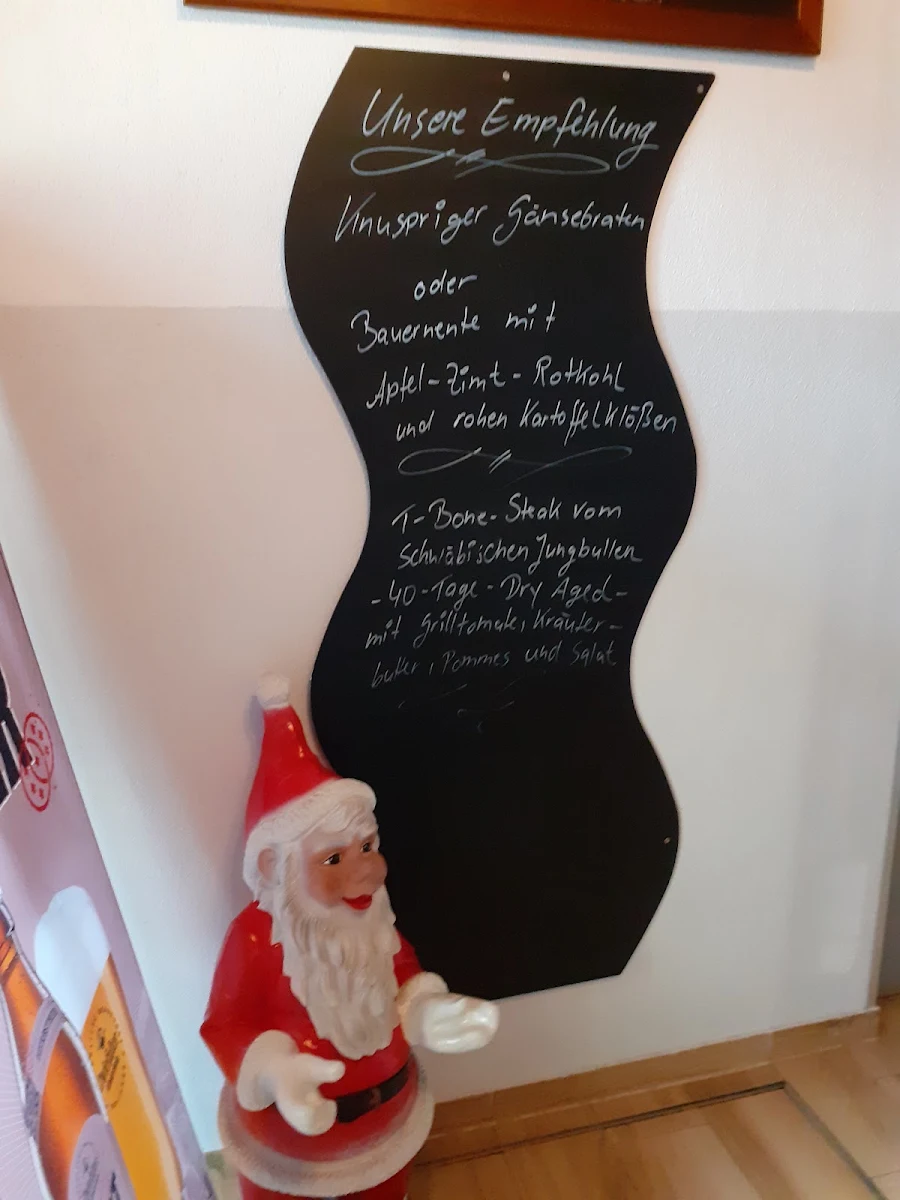 Unsere Empfehlung
Knuspriger Gänsebraten
oder
Bauernente mit
Apfel-Zimt-Rotkohl
und rohen Kartoffelklößen
T-Bone-Steak vom
Schwäbischen Jungbullen
-40-Tage-Dry Aged-
mit Grilltomate, Kräuter-
butter, Pommes und Salat